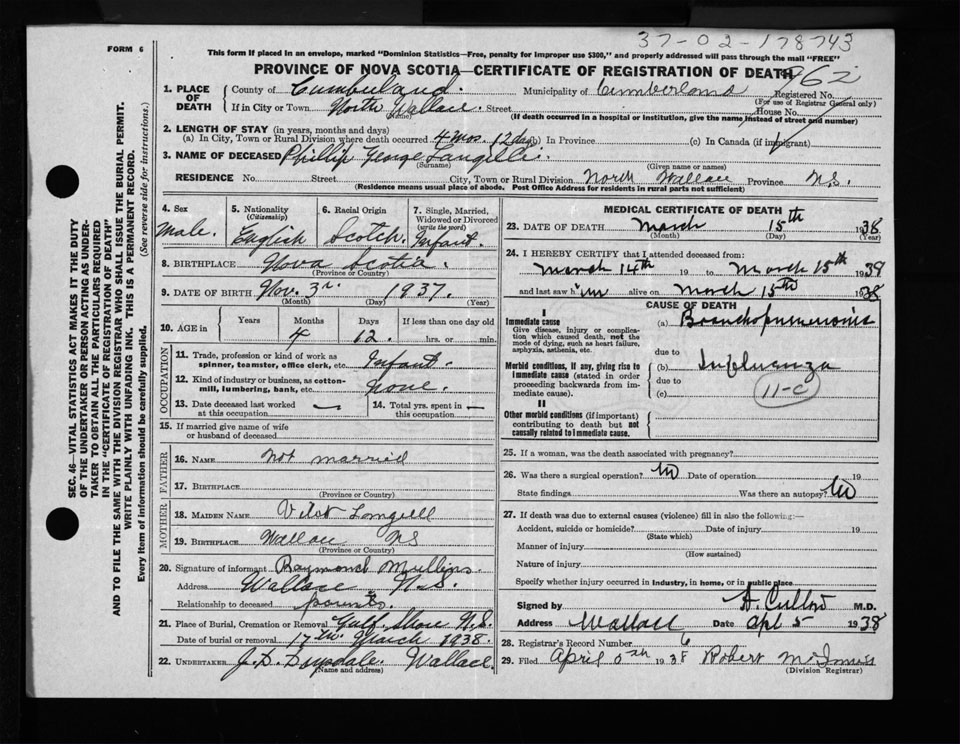 37-02-178743
FORM 6
This form if placed in an envelope, marked "Dominion Statistics—Free, penalty for improper use $300," and properly addressed will pass through the mail "FREE"
PROVINCE OF NOVA SCOTIA—CERTIFICATE OF REGISTRATION OF DEATH
962
1. PLACE OF DEATH
County of Cumberland. Municipality of Cumberland Registered No.
(For use of Registrar General only)
If in City or Town North Wallace Street House No.
(Name) (If death occurred in a hospital or institution, give the name instead of street and number)
2. LENGTH OF STAY (in years, months and days)
(a) In City, Town or Rural Division where death occurred 4 mos. 12 days (b) In Province (c) In Canada (if immigrant)
3. NAME OF DECEASED Phillip George Langille.
(Surname) (Given name or names)
RESIDENCE No. Street City, Town or Rural Division North Wallace Province N.S.
(Residence means usual place of abode. Post Office Address for residents in rural parts not sufficient)
4. Sex Male.
5. Nationality (Citizenship) English
6. Racial Origin Scotch.
7. Single, Married, Widowed or Divorced (write the word) Infant.
8. BIRTHPLACE Nova Scotia.
(Province or Country)
9. DATE OF BIRTH Nov. 3rd. 1937.
(Month) (Day) (Year)
10. AGE in Years Months Days If less than one day old
4 12. hrs. or min.
OCCUPATION
11. Trade, profession or kind of work as spinner, teamster, office clerk, etc. Infant.
12. Kind of industry or business, as cotton-mill, lumbering, bank, etc. None.
13. Date deceased last worked at this occupation —
14. Total yrs. spent in this occupation —
15. If married give name of wife or husband of deceased
FATHER
16. NAME Not married
17. BIRTHPLACE
(Province or Country)
MOTHER
18. MAIDEN NAME Langill
19. BIRTHPLACE Wallace NS
(Province or Country)
20. Signature of informant Raymond Mullins.
Address Wallace N.S.
Relationship to deceased parents.
21. Place of Burial, Cremation or Removal Gulf Shore N.S.
Date of burial or removal 17th. March 1938.
22. UNDERTAKER J.D. Drysdale. Wallace
(Name and address)
MEDICAL CERTIFICATE OF DEATH
23. DATE OF DEATH March 15th 1938
(Month) (Day) (Year)
24. I HEREBY CERTIFY that I attended deceased from:
March 14th 19 to March 15th 1938
and last saw him alive on March 15th 1938
CAUSE OF DEATH
I
Immediate cause
Give disease, injury or complication which caused death, not the mode of dying, such as heart failure, asphyxia, asthenia, etc.
(a) Bronchopneumonia
due to
Morbid conditions, if any, giving rise to immediate cause (stated in order proceeding backwards from immediate cause).
(b) Influenza
due to
(c) 11-c
II
Other morbid conditions (if important) contributing to death but not causally related to immediate cause.
25. If a woman, was the death associated with pregnancy?
26. Was there a surgical operation? No Date of operation 19
State findings Was there an autopsy? No
27. If death was due to external causes (violence) fill in also the following:—
Accident, suicide or homicide? Date of injury 19
(State which)
Manner of injury
(How sustained)
Nature of injury
Specify whether injury occurred in industry, in home, or in public place
Signed by M.D.
Address Wallace Date Apl 5 1938
28. Registrar's Record Number 6
29. Filed April 5th 1938 Robert
(Division Registrar)
SEC. 46—VITAL STATISTICS ACT MAKES IT THE DUTY
OF THE UNDERTAKER OR PERSON ACTING AS UNDER-
TAKER TO OBTAIN ALL THE PARTICULARS REQUIRED
IN THE "CERTIFICATE OF REGISTRATION OF DEATH"
AND TO FILE THE SAME WITH THE DIVISION REGISTRAR WHO SHALL ISSUE THE BURIAL PERMIT.
WRITE PLAINLY WITH UNFADING INK. THIS IS A PERMANENT RECORD.
Every item of information should be carefully supplied. (See reverse side for instructions.)